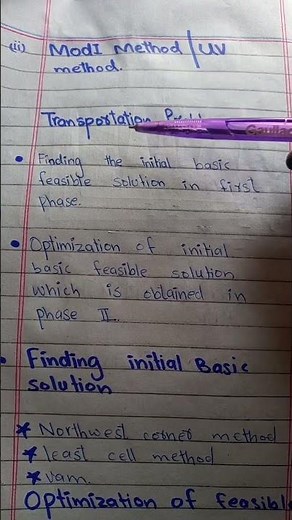 (ii) ModI Method / UV
method.
Transportation
• Finding the initial basic
feasible solution in first
phase.
• Optimization of initial
basic feasible solution
which is obtained in
phase II.
• Finding initial Basic
solution
* Northwest corner method
* least cell method
* vam.
Optimization of feasibl